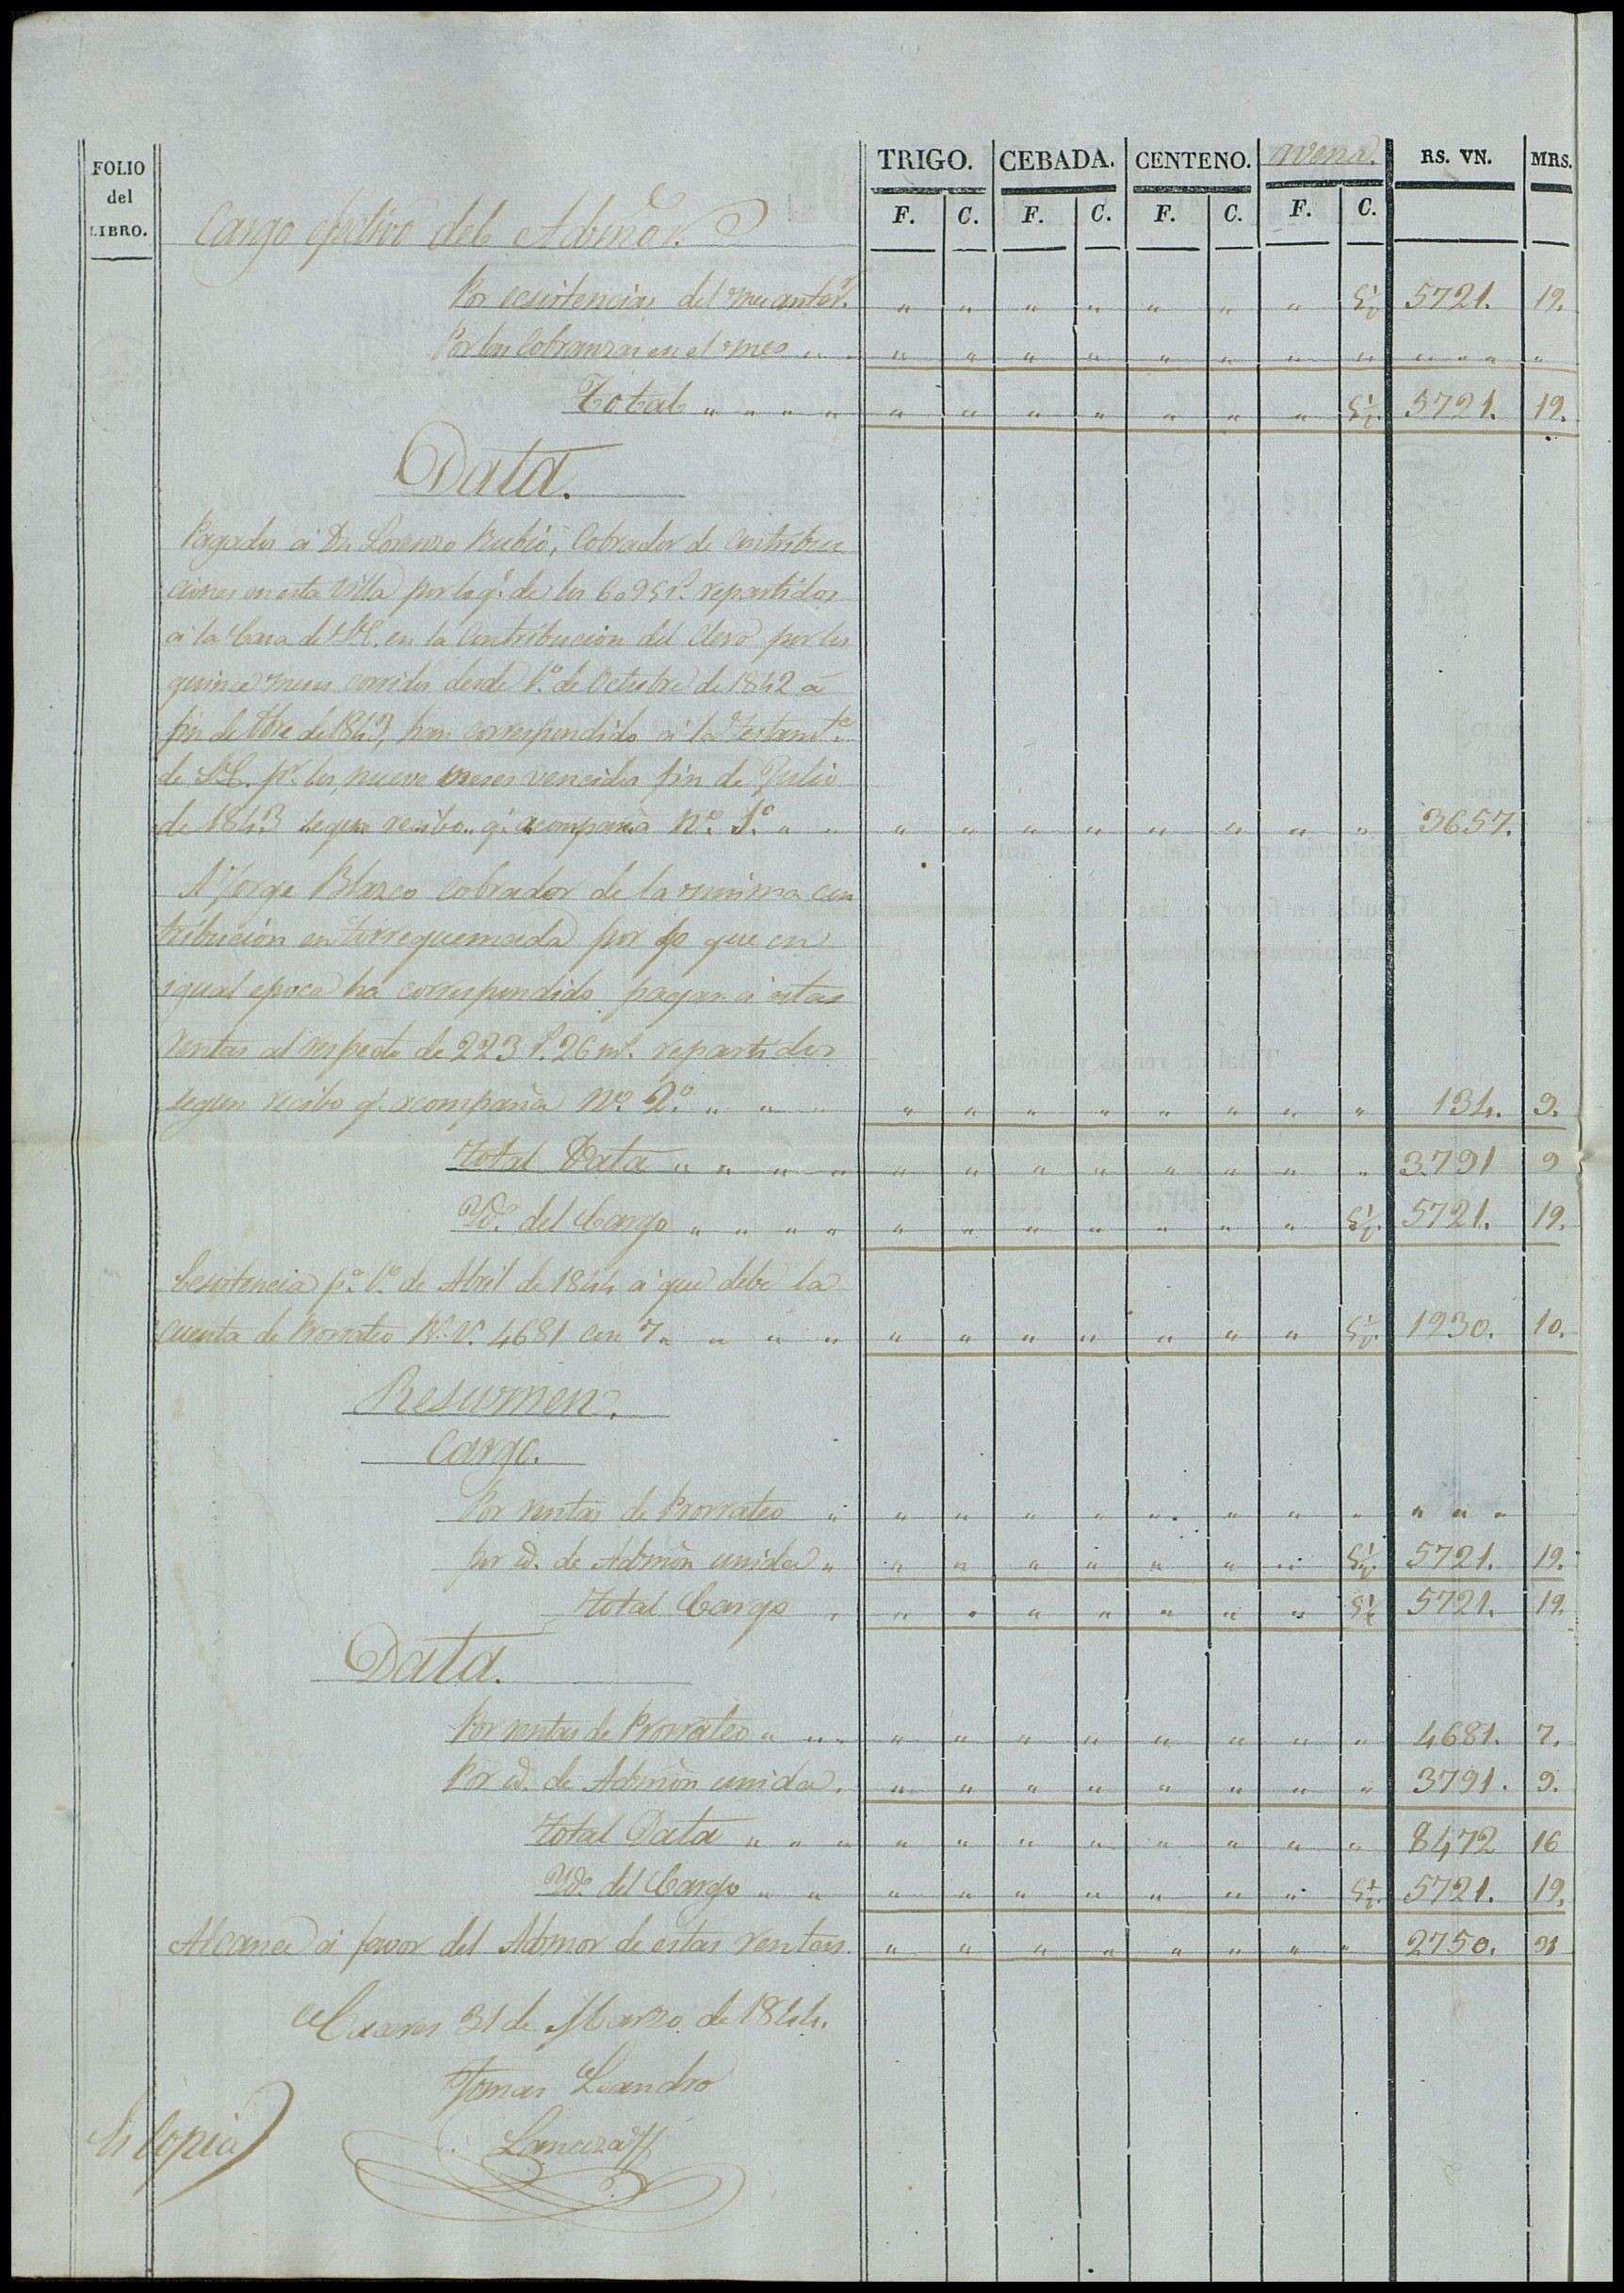 FOLIO
del
LIBRO.
TRIGO. CEBADA. CENTENO. avena. RS. VN. MRS.
F. C. F. C. F. C. F. C.
Cargo efectivo del Admor.
Por ecsistencias del mes anter.r " " " " " " " 5 1/2 5721. 19.
Por las Cobranzas en el mes " " " " " " " " " " " " " "
Total " " " " " " " " " " " 5 1/2. 5721. 19.
Data.
Pagados á Dn. Lorenzo Rubio, Cobrador de Contribu
ciones en esta Villa por lo q.e de los 6095 r.s repartidos
á la Casa de S.E. en la Contribucion del Clero por los
quince meses corridos desde 1.o de Octubre de 1842 á
fin de Dbre de 1843, han correspondido á la Testamt.a
de S.E. p.r los nueve meses vencidos fin de Julio
de 1843 segun recibo q.e acompaña N.o 1.o " " " " " " " " " " 3657.
A Jorge Blazco cobrador de la misma con
tribucion en Torrequemada por lo que en
igual epoca ha correspondido pagar á estas
rentas al respecto de 223 r.s 26 m.s repartidos
segun recibo q.e acompaña N.o 2.o " " " " " " " " " " " 134. 9.
Total Data " " " " " " " " " " " " 3791 9
Yd.m del Cargo " " " " " " " " " " " 5 1/2. 5721. 19.
Ecsistencia p.a 1.o de Abril de 1844 á que debe la
cuenta de Prorrateo R.s V.n 4681 con 7 " " " " " " " " " " " 5 1/2. 1930. 10.
Resumen.
Cargo.
Por rentas de Prorrateo " " " " " " " " " " " "
por id. de Admòn unida " " " " " " " " 5 1/2. 5721. 19.
Total Cargo " " " " " " " " 5 1/2 5721. 19.
Data.
Por rentas de Prorrateo " " " " " " " " " " " 4681. 7.
Por id. de Admòn unida. " " " " " " " " 3791. 9.
Total Data " " " " " " " " " " " 8472 16
Yd.m del Cargo " " " " " " " " " 5 1/2. 5721. 19.
Alcance á favor del Admor de estas rentas. " " " " " " " " 2750. 31
Caceres 31 de Marzo de 1844.
Tomas Leandro
Lanciza
Es copia